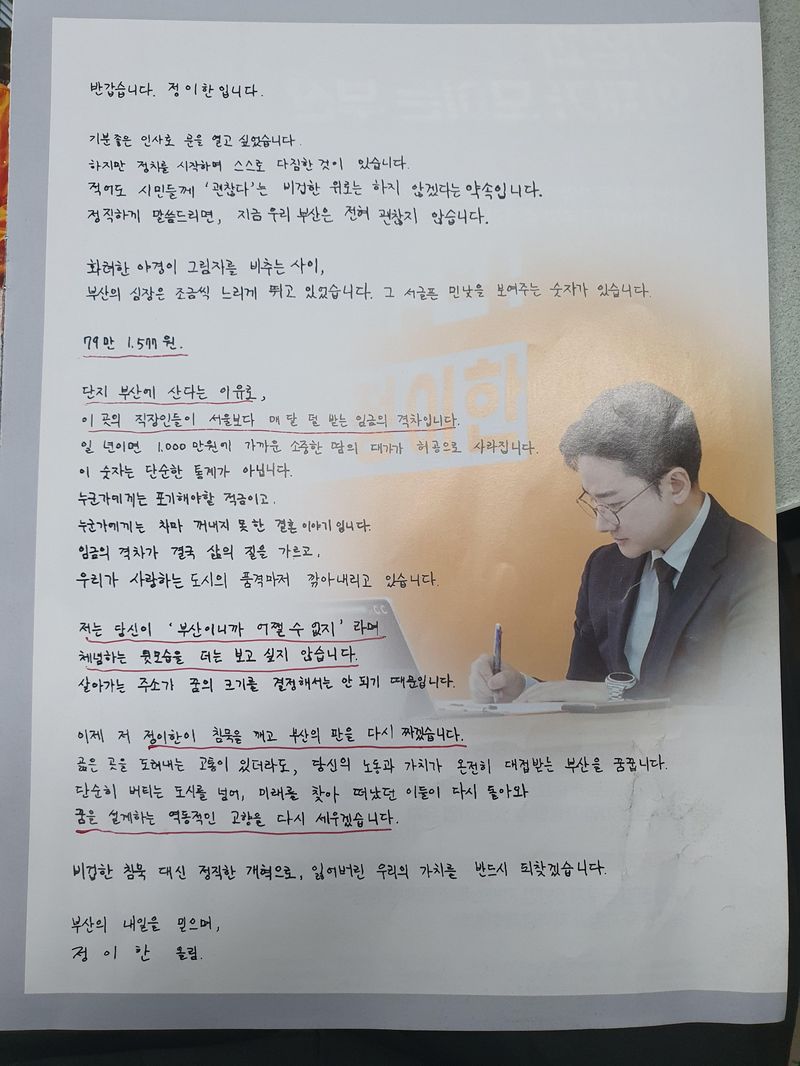 반갑습니다. 정이한입니다.
기분좋은 인사로 문을 열고 싶었습니다.
하지만 정치를 시작하며 스스로 다짐한 것이 있습니다.
적어도 시민들께 '괜찮다'는 비겁한 위로는 하지 않겠다는 약속입니다.
정직하게 말씀드리면, 지금 우리 부산은 전혀 괜찮지 않습니다.
화려한 야경이 그림자를 비추는 사이,
부산의 심장은 조금씩 느리게 뛰고 있었습니다. 그 서글픈 민낯을 보여주는 숫자가 있습니다.
79만 1,577원.
단지 부산에 산다는 이유로,
이 곳의 직장인들이 서울보다 매 달 덜 받는 임금의 격차입니다.
일 년이면 1,000만원에 가까운 소중한 땀의 대가가 허공으로 사라집니다.
이 숫자는 단순한 통계가 아닙니다.
누군가에게는 포기해야할 적금이고,
누군가에게는 차마 꺼내지 못한 결혼 이야기입니다.
임금의 격차가 결국 삶의 질을 가르고,
우리가 사랑하는 도시의 품격마저 깎아내리고 있습니다.
저는 당신이 '부산이니까 어쩔 수 없지' 라며
체념하는 뒷모습을 더는 보고 싶지 않습니다.
살아가는 주소가 꿈의 크기를 결정해서는 안 되기 때문입니다.
이제 저 정이한이 침묵을 깨고 부산의 판을 다시 짜겠습니다.
곪은 곳을 도려내는 고통이 있더라도, 당신의 노동과 가치가 온전히 대접받는 부산을 꿈꿉니다.
단순히 버티는 도시를 넘어, 미래를 찾아 떠났던 이들이 다시 돌아와
꿈을 설계하는 역동적인 고향을 다시 세우겠습니다.
비겁한 침묵 대신 정직한 개혁으로, 잃어버린 우리의 가치를 반드시 되찾겠습니다.
부산의 내일을 믿으며,
정 이 한 올림.